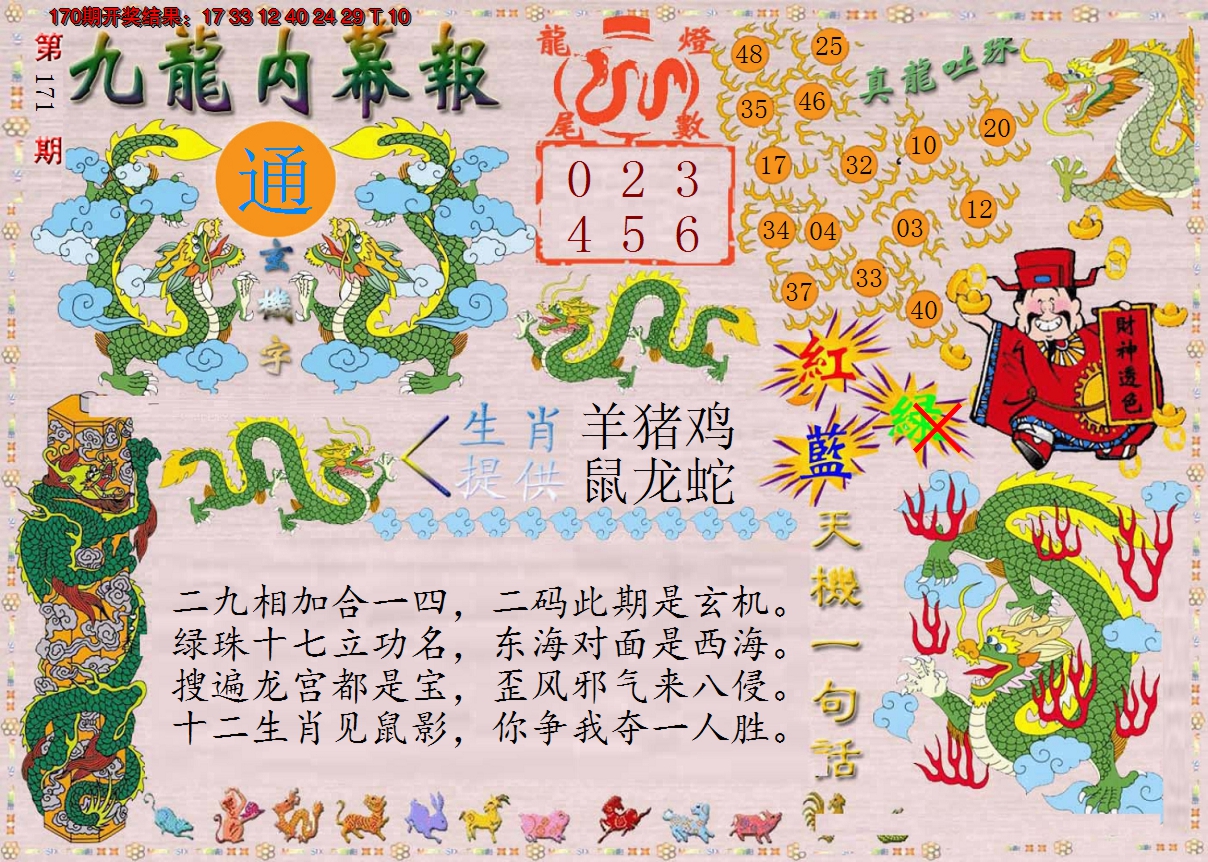 170期开奖结果：17 33 12 40 24 29 T 10
第171期
九龍内幕報
通
玄機字
龍燈
尾數
0 2 3
4 5 6
真龍吐珠
48 25
35 46
17 32 10 20
34 04 03 12
37 33 40
財神透色
紅
綠
藍
生肖提供
羊猪鸡
鼠龙蛇
天機一句话
二九相加合一四，二码此期是玄机。
绿珠十七立功名，东海对面是西海。
搜遍龙宫都是宝，歪风邪气来八侵。
十二生肖见鼠影，你争我夺一人胜。